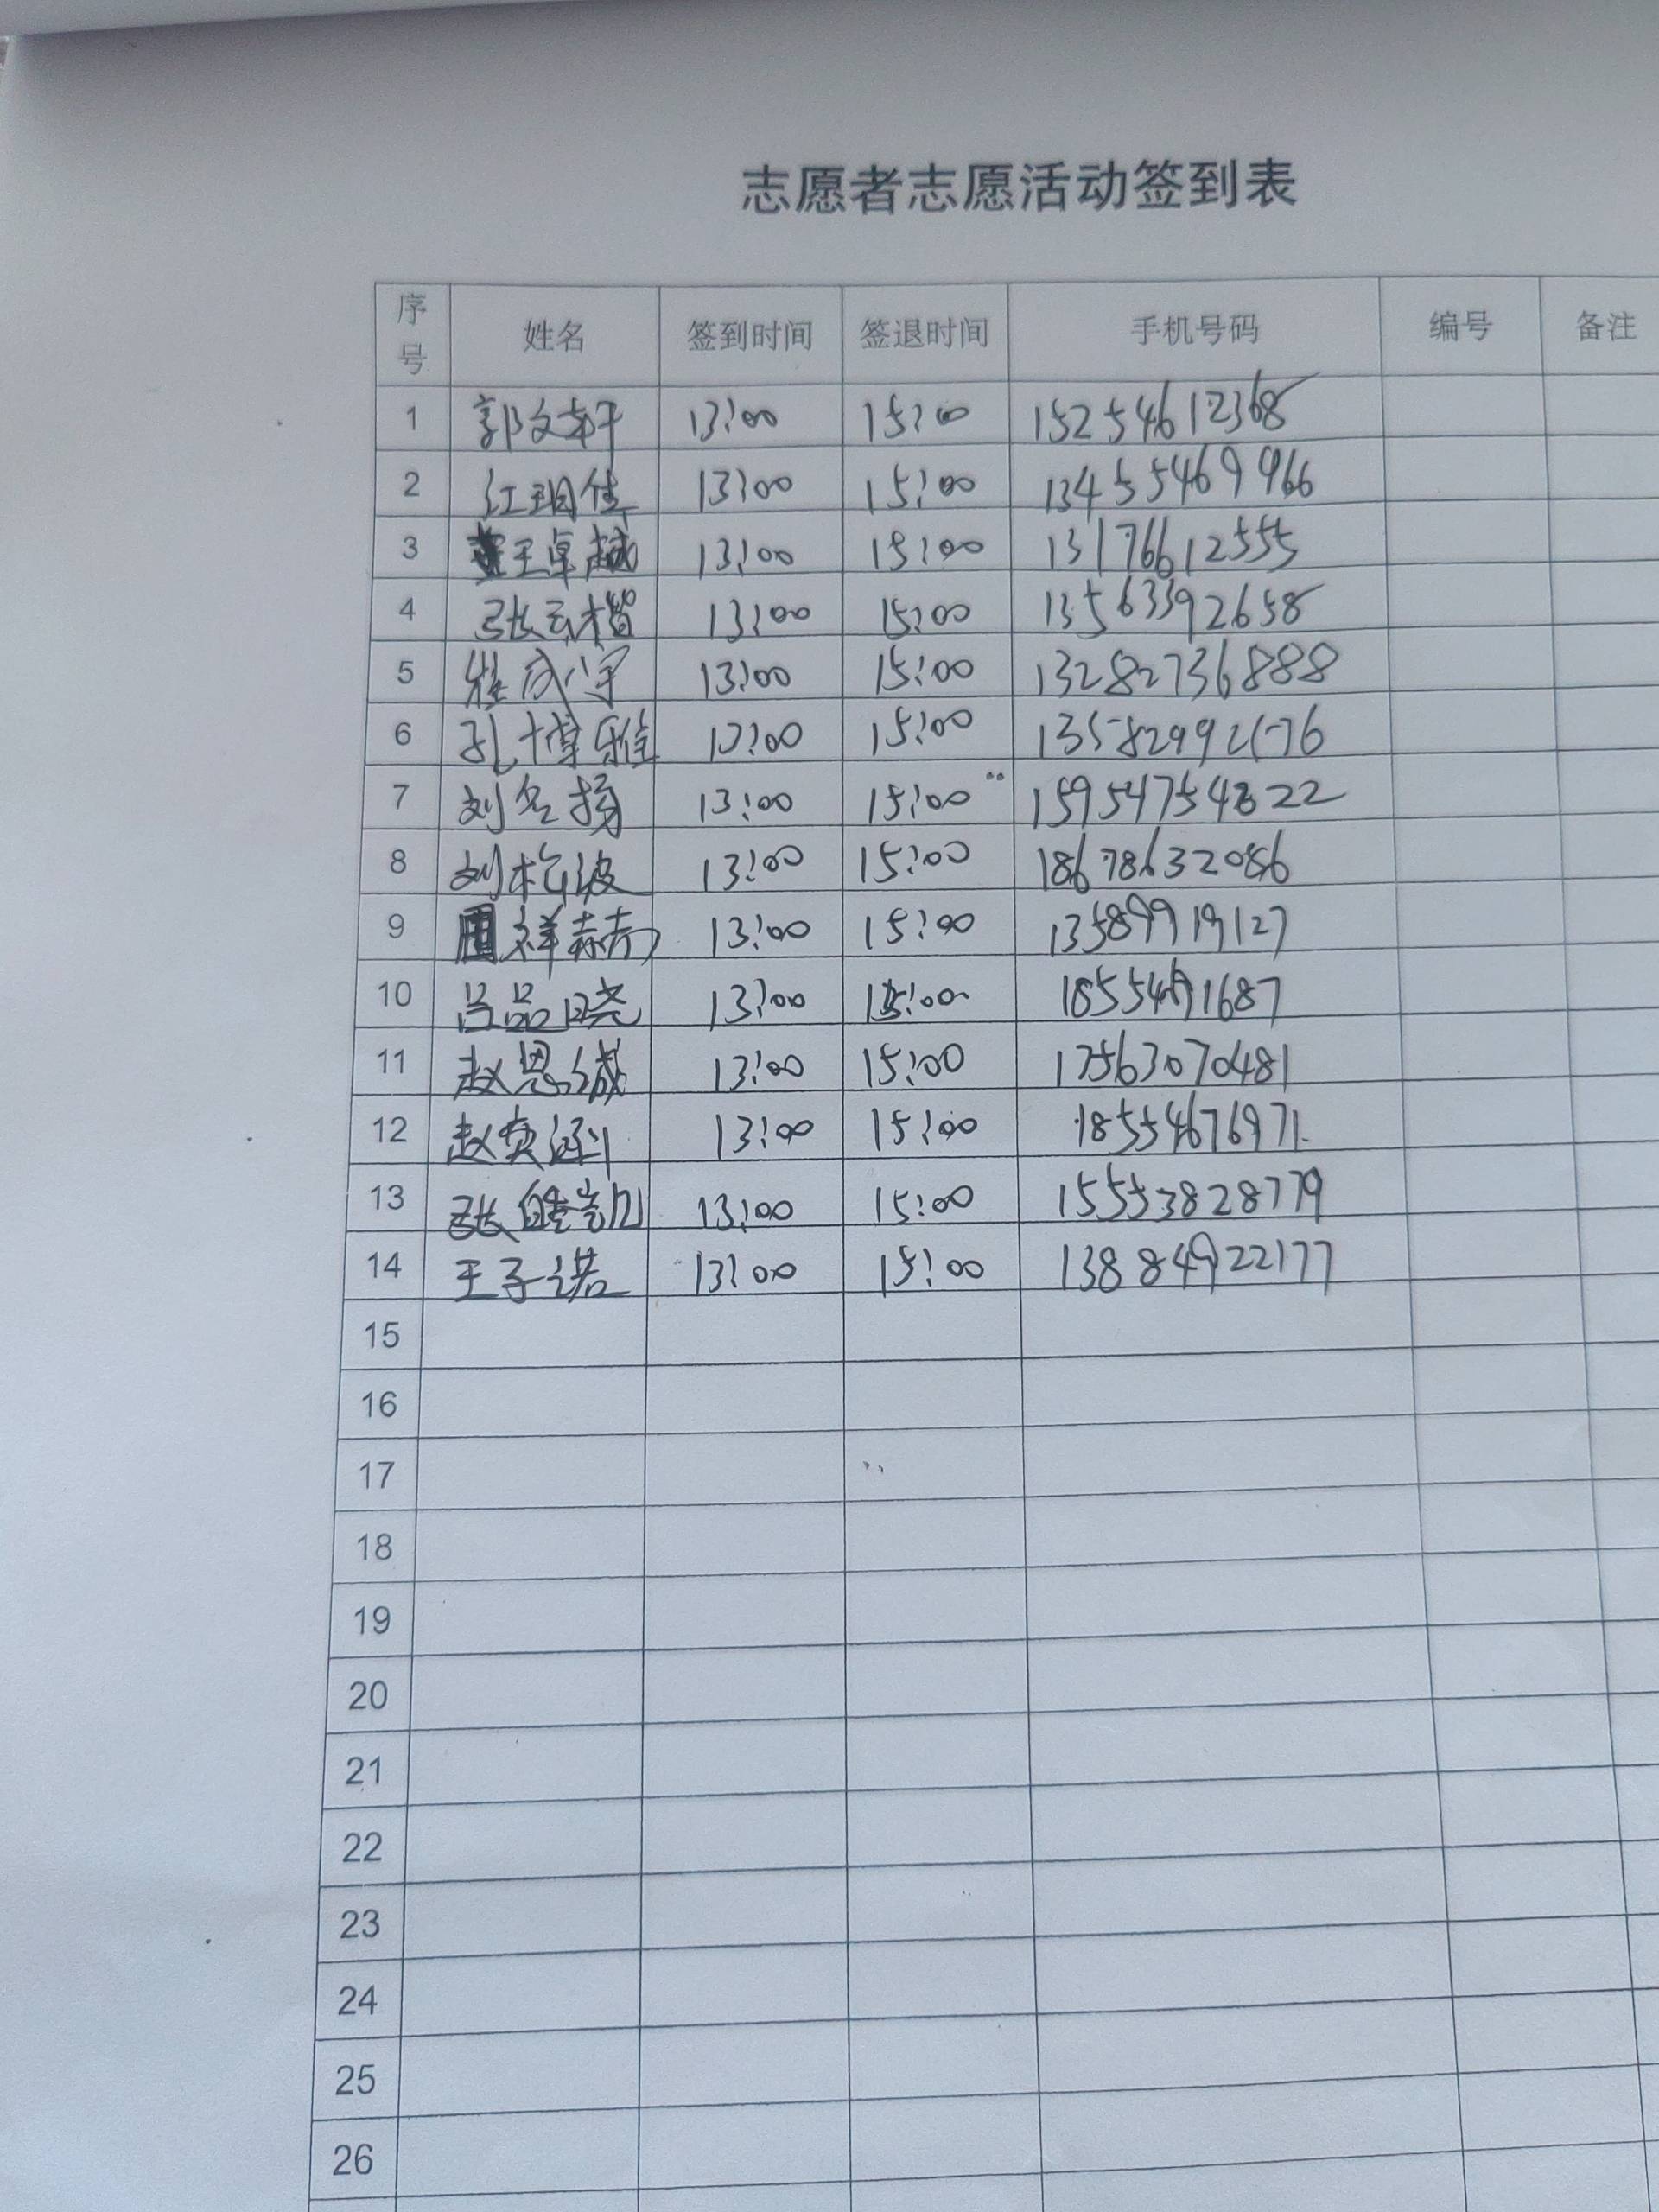 志愿者志愿活动签到表
序号 姓名 签到时间 签退时间 手机号码 编号 备注
1 郭文轩 13:00 15:00 15254612368
2 江玥佳 13:00 15:00 13455469966
3 王卓越 13:00 15:00 13176612555
4 张云楷 13:00 15:00 13563392658
5 13:00 15:00 13282736888
6 孔博雅 13:00 15:00
7 刘名扬 13:00 15:00
8 刘松波 13:00 15:00 18678632086
9 祥 13:00 15:00 13589919127
10 吕品晓 13:00 15:00
11 赵恩诚 13:00 15:00 17563070481
12 赵奕涵 13:00 15:00 18554676971
13 张皓凯 13:00 15:00 15553828779
14 王子诺 13:00 15:00 13884922177
15
16
17
18
19
20
21
22
23
24
25
26